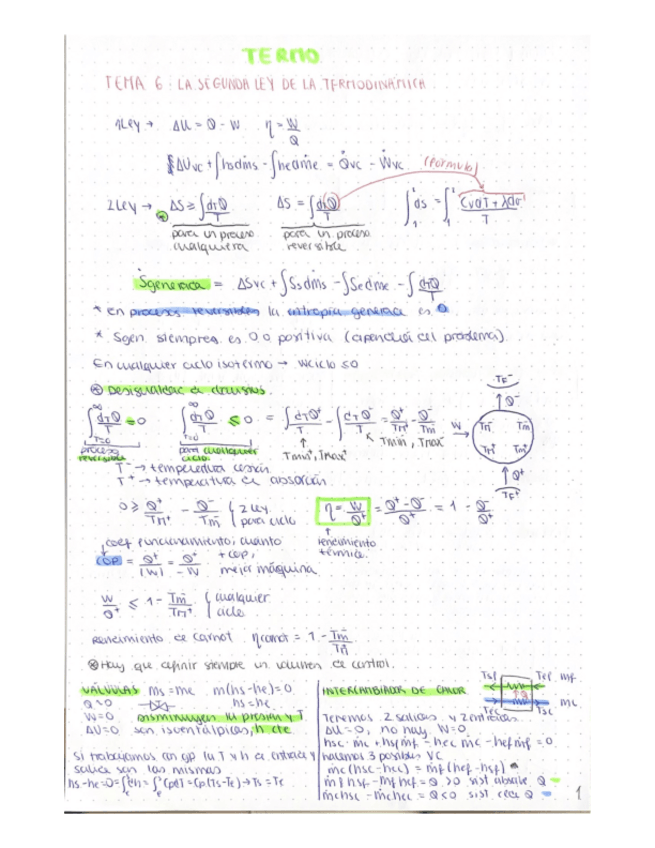 TERMO
TEMA 6: LA SEGUNDA LEY DE LA TERMODINÁMICA
1Ley → ΔU = Q - W η = W/Q
ΔUvc + ∫hsdms - ∫hedme = Qvc - Wvc (fórmula)
2Ley → ΔS ≥ ∫dτQ/T ΔS = ∫dτQ/T ∫ds = ∫ CvdT + λdv / T
para un proceso cualquiera para un proceso reversible
Sgenerada = ΔSvc + ∫Ssdms - ∫Sedme - ∫dτQ/T
* En procesos reversibles la entropia generada es 0
* Sgen siempre es 0 o positiva (dependerá del problema)
En cualquier ciclo isotermo → Wciclo ≤0
Desigualdad de clausius.
∫dτQ/T = 0 ∫dτQ/T ≤ 0 = ∫dτQ⁺/T - ∫dτQ⁻/T = Q⁺/Tm⁺ - Q⁻/Tm⁻
T=0 T=0
proceso reversible para cualquier ciclo. Tmin⁺, Tmax⁺ Tmin⁻, Tmax⁻
TF⁻ Q⁻ W Tm⁺ Tm⁻ Q⁺ TF⁺
T⁻ → temperatura cesión
T⁺ → temperatura de absorción.
0 ≥ Q⁺/Tm⁺ - Q⁻/Tm⁻ { 2Ley para ciclo η = W/Q⁺ = Q⁺-Q⁻/Q⁺ = 1 - Q⁻/Q⁺
coef funcionamiento; cuanto + cop, mejor máquina rendimiento térmico.
COP = Q⁺/|W| = Q⁺/-W
W/Q⁺ ≤ 1 - Tm⁻/Tm⁺ { cualquier ciclo
Rendimiento de Carnot ηcarnot = 1 - Tm⁻/Tm⁺
Hay que definir siempre un volumen de control.
VÁLVULAS ms=me m(hs-he)=0
Q=0 hs=he
W=0 Disminuyen la presion y T
ΔU=0 son isoentálpicas, h cte
Si trabajamos con gp la T y h de entrada y
salida son las mismas
hs-he=0=∫dh=∫CpdT=Cp(Ts-Te)→Ts=Te
INTERCAMBIADOR DE CALOR
Tsf Tef mf
Tec Tsc mc
Tenemos 2 salidas y 2 entradas
ΔU=0, no hay W=0
hsc·mc + hsf mf - hec mc - hef mf = 0
hacemos 3 posibles VC
mc(hsc-hec) = mf(hef-hsf)
mf hsf - mf hef = Q >0 sist absorbe Q
mchsc - mchec = Q<0 sist cede Q
1